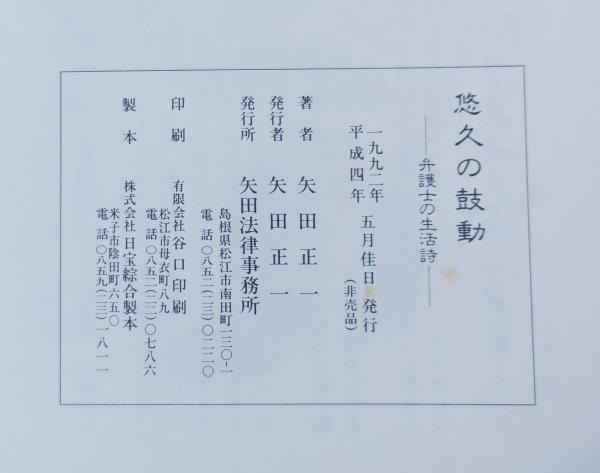 悠久の鼓動
――弁護士の生活詩――
一九九二年
平成四年 五月佳日 発行
(非売品)
著者 矢田正一
発行者 矢田正一
発行所 矢田法律事務所
島根県松江市南田町一三〇-一
電話〇八五二(二三)〇二二〇
印刷 有限会社 谷口印刷
松江市母衣町八九
電話〇八五二(二二)〇七八六
製本 株式会社 日宝綜合製本
米子市陰田町六五〇
電話〇八五九(二三)一八一一